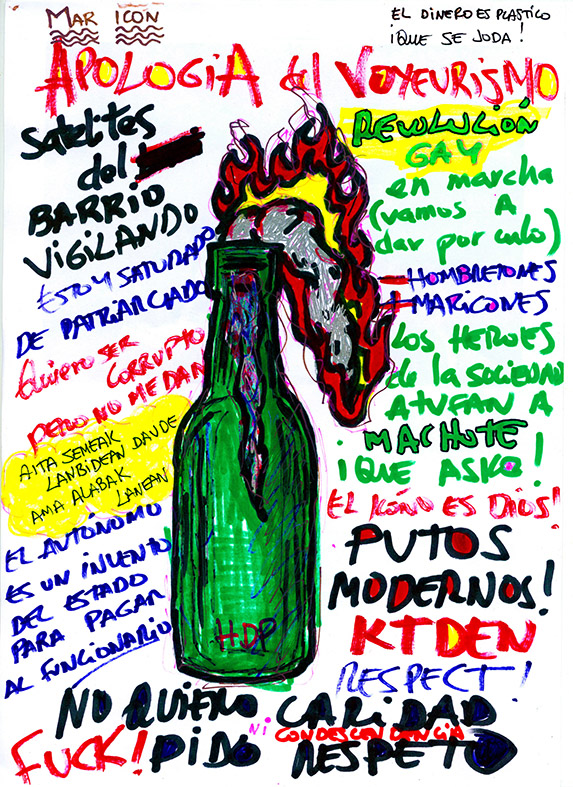 MARICON
EL DINERO ES PLASTICO
¡QUE SE JODA!
APOLOGIA del VOYEURISMO
Satelites
del
BARRIO
VIGILANDO
ESTOY SATURADO
DE PATRIARCADO
Quiero SER
CORRUPTO
PERO NO ME DAN
AITA SEMEAK
LANBIDEAN DAUDE
AMA ALABAK
LANEAN
EL AUTÓNOMO
ES UN INVENTO
DEL ESTADO
PARA PAGAR
AL FUNCIONARIO
REVOLUCIÓN
GAY
en marcha
(vamos A
dar por culo)
- HOMBRETONES
+ MARICONES
LOS HEROES
de la SOCIEDAD
ATUFAN A
MACHOTE
¡QUE ASKO!
EL KOÑO ES DIOS!
PUTOS
MODERNOS!
KTDEN
RESPECT!
HDP
NO QUIERO CARIDAD
NI CONDESCENDENCIA
FUCK! PIDO RESPETO